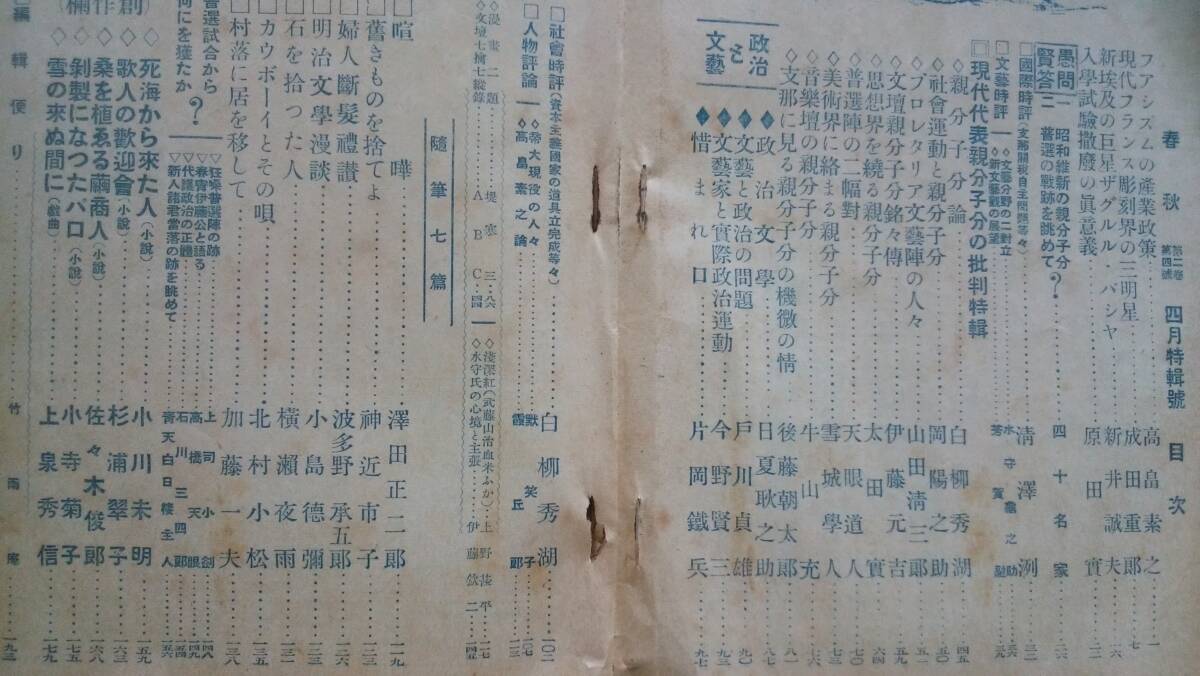 春秋 第二卷第四號 四月特輯號 目次
フアシズムの產業政策 高畠素之 一
現代フランス彫刻界の三明星 成田重郎 七
新埃及の巨星ザグルル・パシヤ 新井誠夫
入學試驗撤廢の眞意義 原田實
愚問賢答二
昭和維新の親分子分
普選の戰跡を眺めて?
四十名家
□國際時評(支那關稅自主問題等々) 清澤洌
□文藝時評
◇文藝分野の二對立 水守龜之助
◇新文藝戰の展望 芳賀融
□現代代表親分子分の批判特輯
◇親分子分論 白柳秀湖 四五
◇社會運動と親分子分 岡陽之助 五〇
◇プロレタリア文藝陣の人々 山田清三郎 五一
◇文壇親分子分銘々傳 伊藤元吉 五九
◇思想界を繞る親分子分 太田實 六四
◇普選陣の二幅對 天眼道人 七〇
◇美術界に絡まる親分子分 雪城學人 七三
◇音樂壇の親分子分 牛山充 七六
◇支那に見る親分子分の機微の情 後藤朝太郎 八一
政治と文藝
◆政治文學 日夏耿之助 八七
◆文藝と政治の問題 戶川貞雄 九〇
◆文藝家と實際政治運動 今野賢三 九三
◆惜まれ口 片岡鐵兵 九七
□社會時評(資本主義國家の道具立完成等々) 白柳秀湖 一〇二
□人物評論
◇帝大現役の人々 默笑子 一〇七
◇高畠素之論 霞丘郎 一一三
◇漫畫二題 堤寒三 八六
◇文壇七擒七縱錄 ABC 四四
◇淺深紅(武藤山治血米ふか) 上野湊平 一七
◇水守氏の心境と主張 伊藤欽二 四五
隨筆七篇
□喧嘩 澤田正二郎 一一九
□舊きものを捨てよ 神近市子 一二三
□婦人斷髮禮讃 波多野承五郎 一二六
□明治文學漫談 小島德彌 一二三
□石を拾った人 橫瀨夜雨 一三一
□カウボーイとその唄 北村小松 一三五
□村落に居を移して 加藤一夫 一三八
普選試合から何にを獲たか?
▽狂噪普選陣の跡 上司小劍 一四八
▽春宵伊藤公と語る 高橋天眼 一四九
▽代議政治の正體 石川三四郎 一五四
▽新人諸君當落の跡を眺めて 靑天白日樓主人 一五六
創作欄
◇死海から來た人(小說) 小川未明 一五九
◇歌人の歡迎會(小說) 杉浦翠子 一六三
◇桑を植ゑる繭商人(小說) 佐々木俊郎 一六八
◇剝製になつたバロ(小說) 小寺菊子 一七五
◇雪の來ぬ間に(戲曲) 上泉秀信 一七九
編輯便り 竹雨庵 一九三